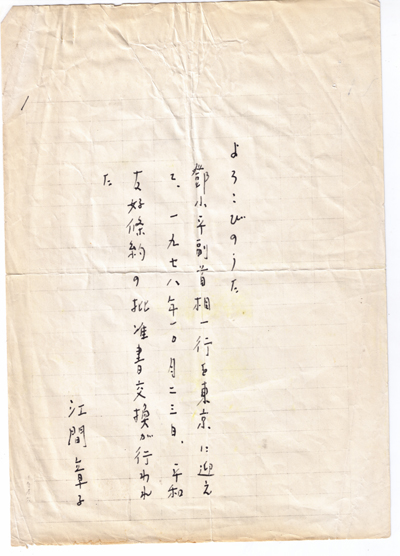 よろこびのうた
鄧小平副首相一行を東京に迎え
て、一九七八年一〇月二三日、平和
友好條約の批准書交換が行われ
た
江間章子